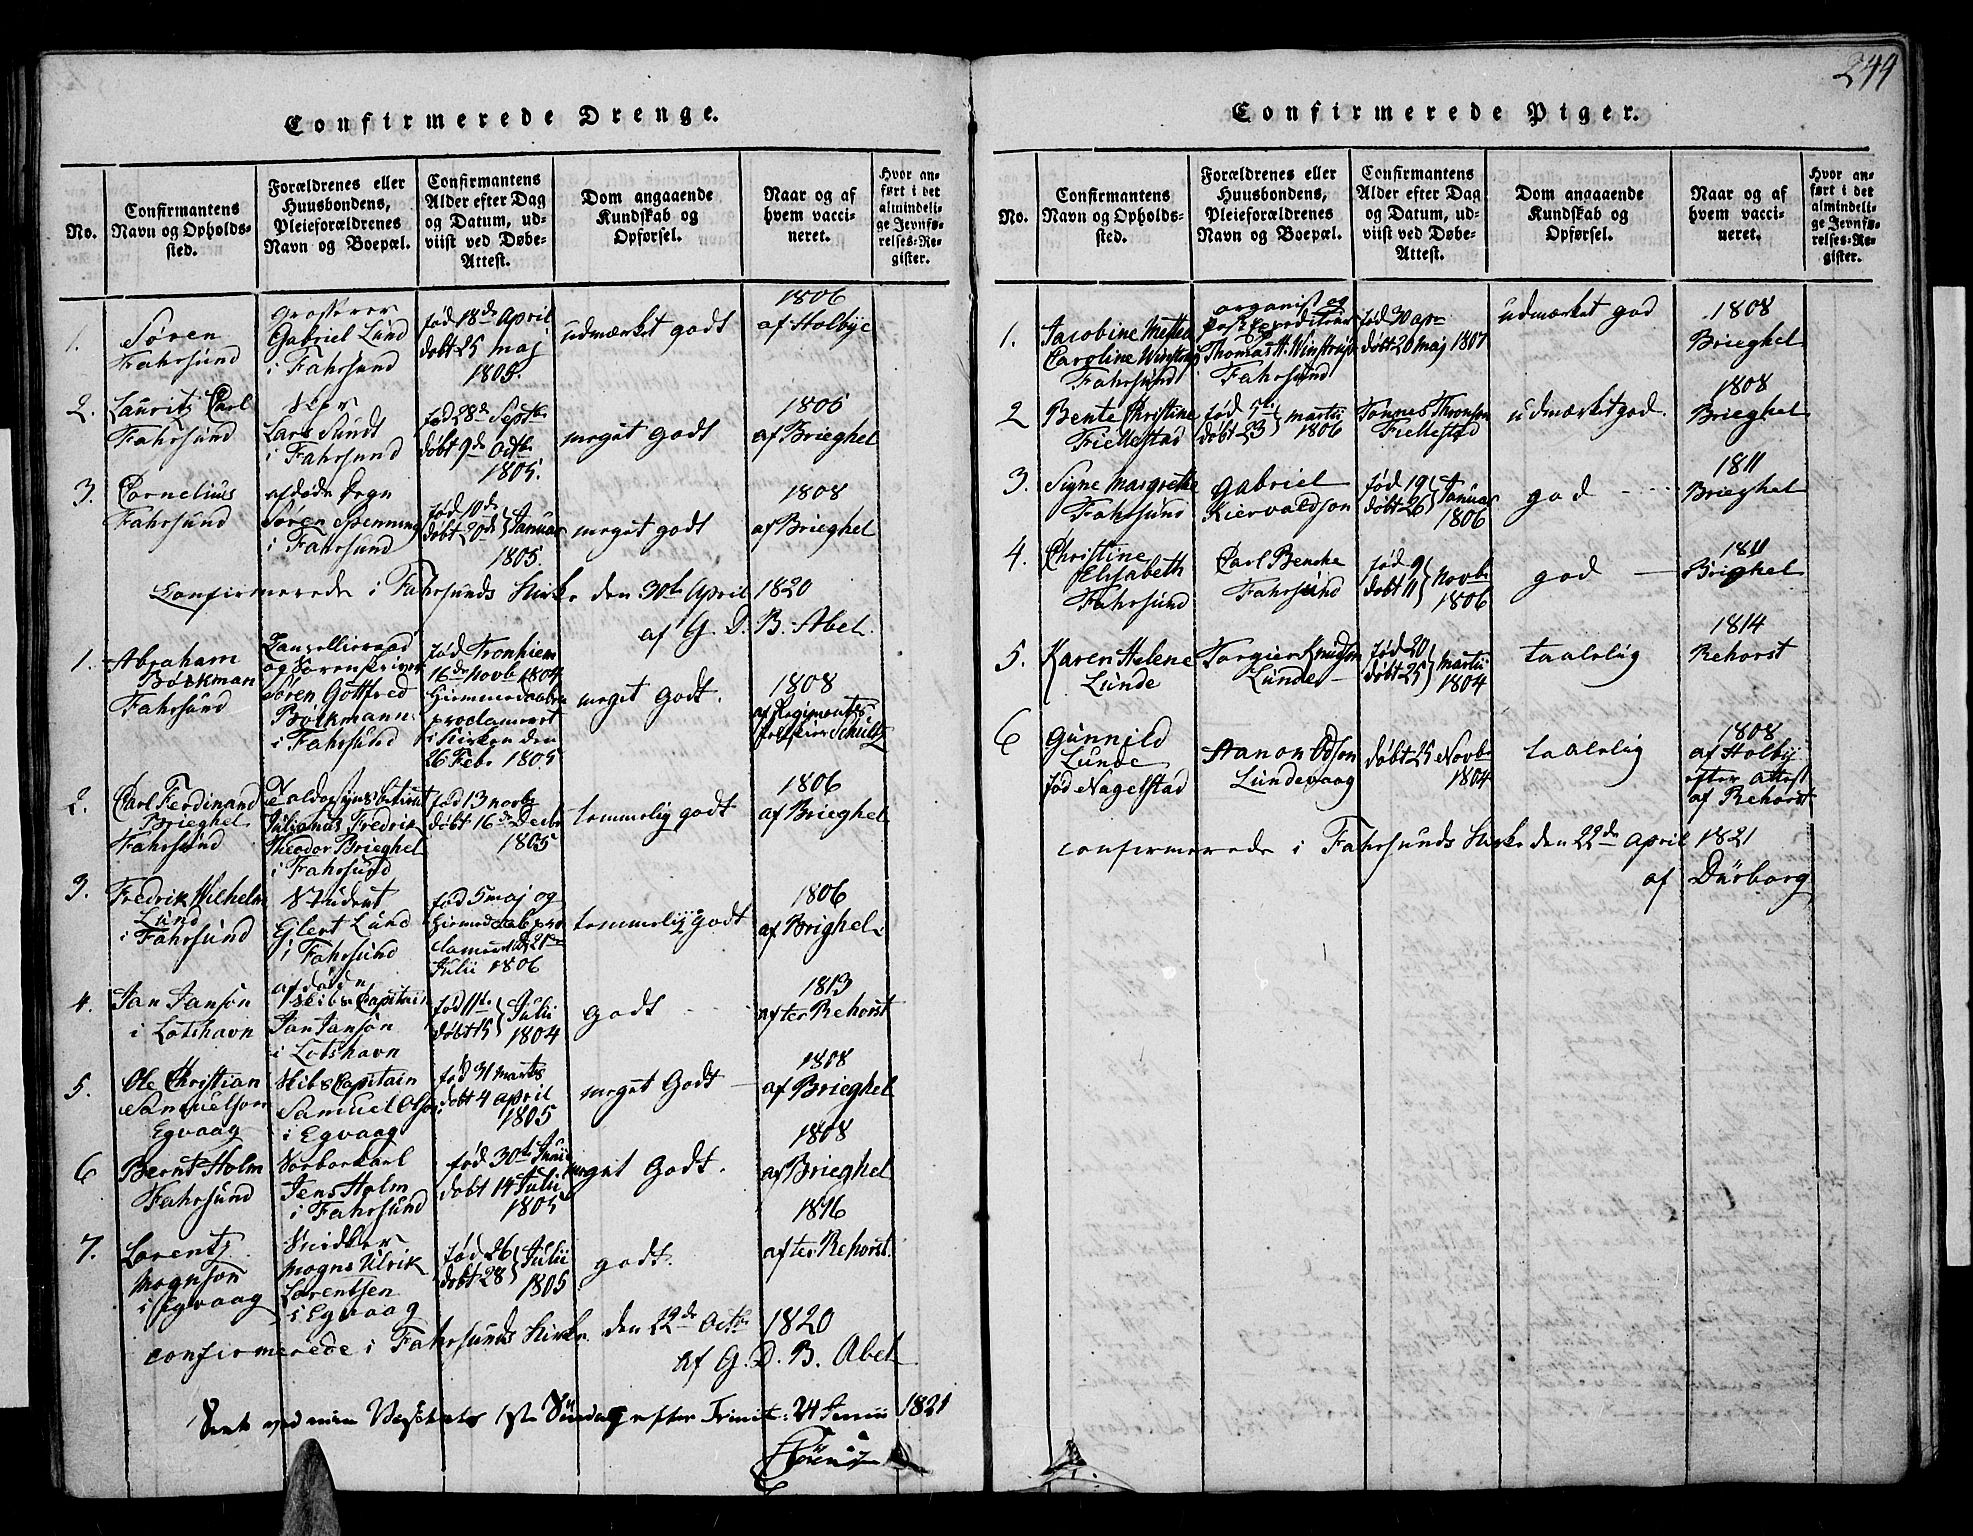 244
Confirmerede Drenge.
No.
Confirmantens
Navn og Opholds-
sted.
Forældrenes eller
Huusbondens,
Pleieforældrenes
Navn og Boepæl.
Confirmantens
Alder efter Dag
og Datum, ud-
viist ved Døbe-
Attest.
Dom angaaende
Kundskab og
Opførsel.
Naar og af
hvem vacci-
neret.
Hvor an-
ført i det
almindeli-
ge Jevnfø-
relses-Re-
gister.
1.
Søren
Fahrsund
Grosserer
Gabriel Lund
i Fahrsund
født 18de April
døbt 25 maj
1805.
udmærket godt
1806
af Holbye
2.
Lauritz Carl
Fahrsund
Lars Sundt
i Fahrsund
fød 28de Septbr
døbt 9de Octbr
1805.
meget godt
1805
af Brieghel
3.
Cornelius
Fahrsund
afdøde Degn
Søren Spenning
i Fahrsund
fød 10de
døbt 20de Januar
1805.
meget godt
1808
af Brieghel
Confirmerede i Fahrsunds Kirke den 30te April 1820
af G. D. B. Abel.
1.
Abraham
Bøckman
Fahrsund
Cancelliraad
og Sorenskriver
Søren Gottfred
Bøckmann
i Fahrsund
fød Tronhiem
16de Novb 1804
Hiemmedaaben
proclameret
i Kirken den
26 Febr 1805
meget godt.
1808
af Regiments
Schultz
2.
Carl Ferdinand
Brieghel
Fahrsund
Julianus Fredrik
Theodor Brieghel
i Fahrsund
fød 13 novbr
døbt 16de Decbr
1805
temmelig godt
1806
af Brieghel
3.
Fredrik Wilhelm
Lund
i Fahrsund
Student
Glert Lund
i Fahrsund
fød 5 maj og
Hiemmedaab pro-
clameret d 21de
Julii 1806
temmelig godt
1806
af Brighel
4.
Jan Janson
i Lotshavn
afdøden
Skibs Capitain
Jan Janson
i Lotshavn
fød 11te
døbt 15 Julii
1804
godt
1813
after Rehorst
5.
Ole Christian
Samuelson
Egvaag
Skibs Capitain
Samuel Olson
i Egvaag
fød 31 Marts
døbt 4 april
1805
meget Godt
1808
af Brieghel
6
Bernt Holm
Fahrsund
Jens Holm
i Fahrsund
fød 30te Junii
døbt 14 Julii
1805
meget Godt.
1808
af Brieghel
7.
Lorentz
Mognson
i Egvaag
Snidker
Mogns Ulrik
Lorentsen
i Egvaag
fød 26
døbt 28 Julii
1805
godt.
1816
after Rehorst.
confirmerede i Fahrsunds Kirke den 22de Octbr 1820
af G. D. B. Abel
Seet ved min Visitats 1ste Søndag efter Trinit: 24 Junii 1821
Confirmerede Piger.
No.
Confirmantens
Navn og Opholds-
sted.
Forældrenes eller
Huusbondens,
Pleieforældrenes
Navn og Boepæl.
Confirmantens
Alder efter Dag
og Datum, ud-
viist ved Døbe-
Attest.
Dom angaaende
Kundskab og
Opførsel.
Naar og af
hvem vacci-
neret.
Hvor an-
ført i det
almindeli-
ge Jevnfø-
relses-Re-
gister.
1.
Jacobine Mette
Caroline Winstrup
Fahrsund
organist og
Postexpediteur
Thomas H. Winstrup
Fahrsund
fød 30 apr
døbt 20 maj 1807
udmærket god
1808
Brieghel
2
Bente Christine
Fiellestad
fød 7de
døbt 23 martii
1806
Tønnes Thronsen
Fiellestad
udmærket god.
1808
Brieghel
3.
Signe Margrethe
Fahrsund
Gabriel
Kiervaldson
fød 19
døbt 26 Januar
1806
god
1811
Brieghel
4.
Christine
Elisabeth
Fahrsund
Carl Bencke
Fahrsund
fød 9
døbt 11 Novbr
1806
god
1811
Brighel
5.
Karen Helene
Lunde
Torgier Knudsen
Lunde
fød 20
døbt 25 martii
1804
taalelig
1814
Rehorst
6
Gunnild
Lunde
fød Nagelstad
Aanon Odson
Lundevaag
døbt 25 Novbr
1804
taalelig
1808
af Holby
efter attest
af Rehorst
confirmerede i Fahrsunds Kirke den 22de april 1821
af Dürborg